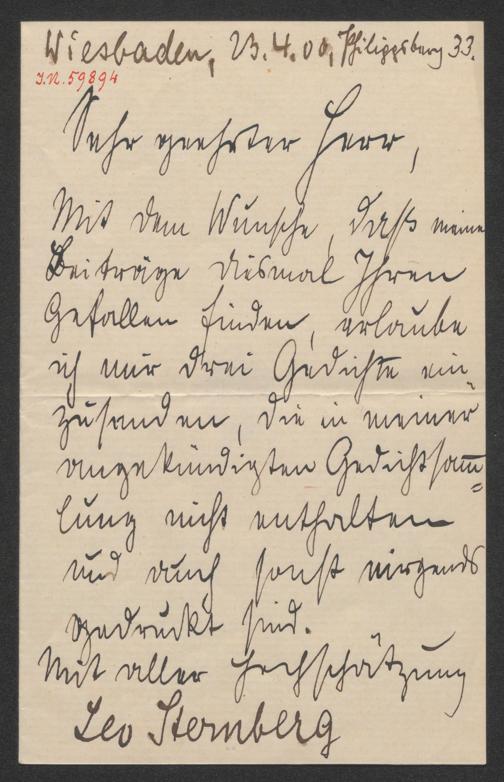 Wiesbaden, 23.4.00, Philippsberg 33.
I.N. 59894
Sehr geehrter Herr,
Mit dem Wunsche, daß meine
Beiträge diesmal Ihren
Gefallen finden, erlaube
ich mir drei Gedichte ein-
zusenden, die in meiner
angekündigten Gedichtsam̅-
lung nicht enthalten
und auch sonst nirgends
gedruckt sind.
Mit aller Hochschätzung
Leo Sternberg